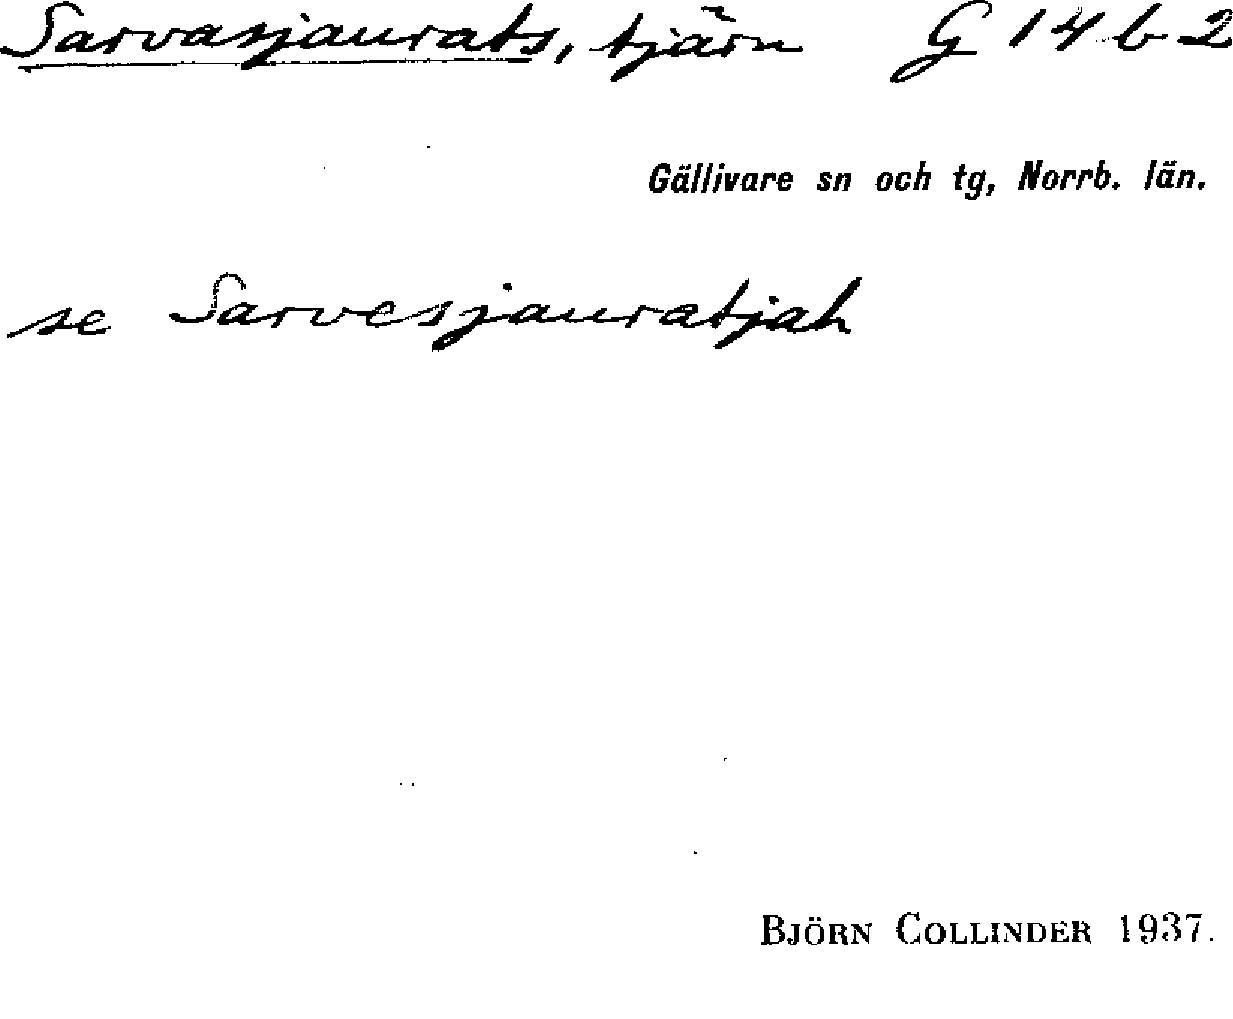 Sarvasjaurats, tjärn G 14 b 2
Gällivare sn och tg, Norrb. län.
se Sarvesjauratjah
BJÖRN COLLINDER 1937.